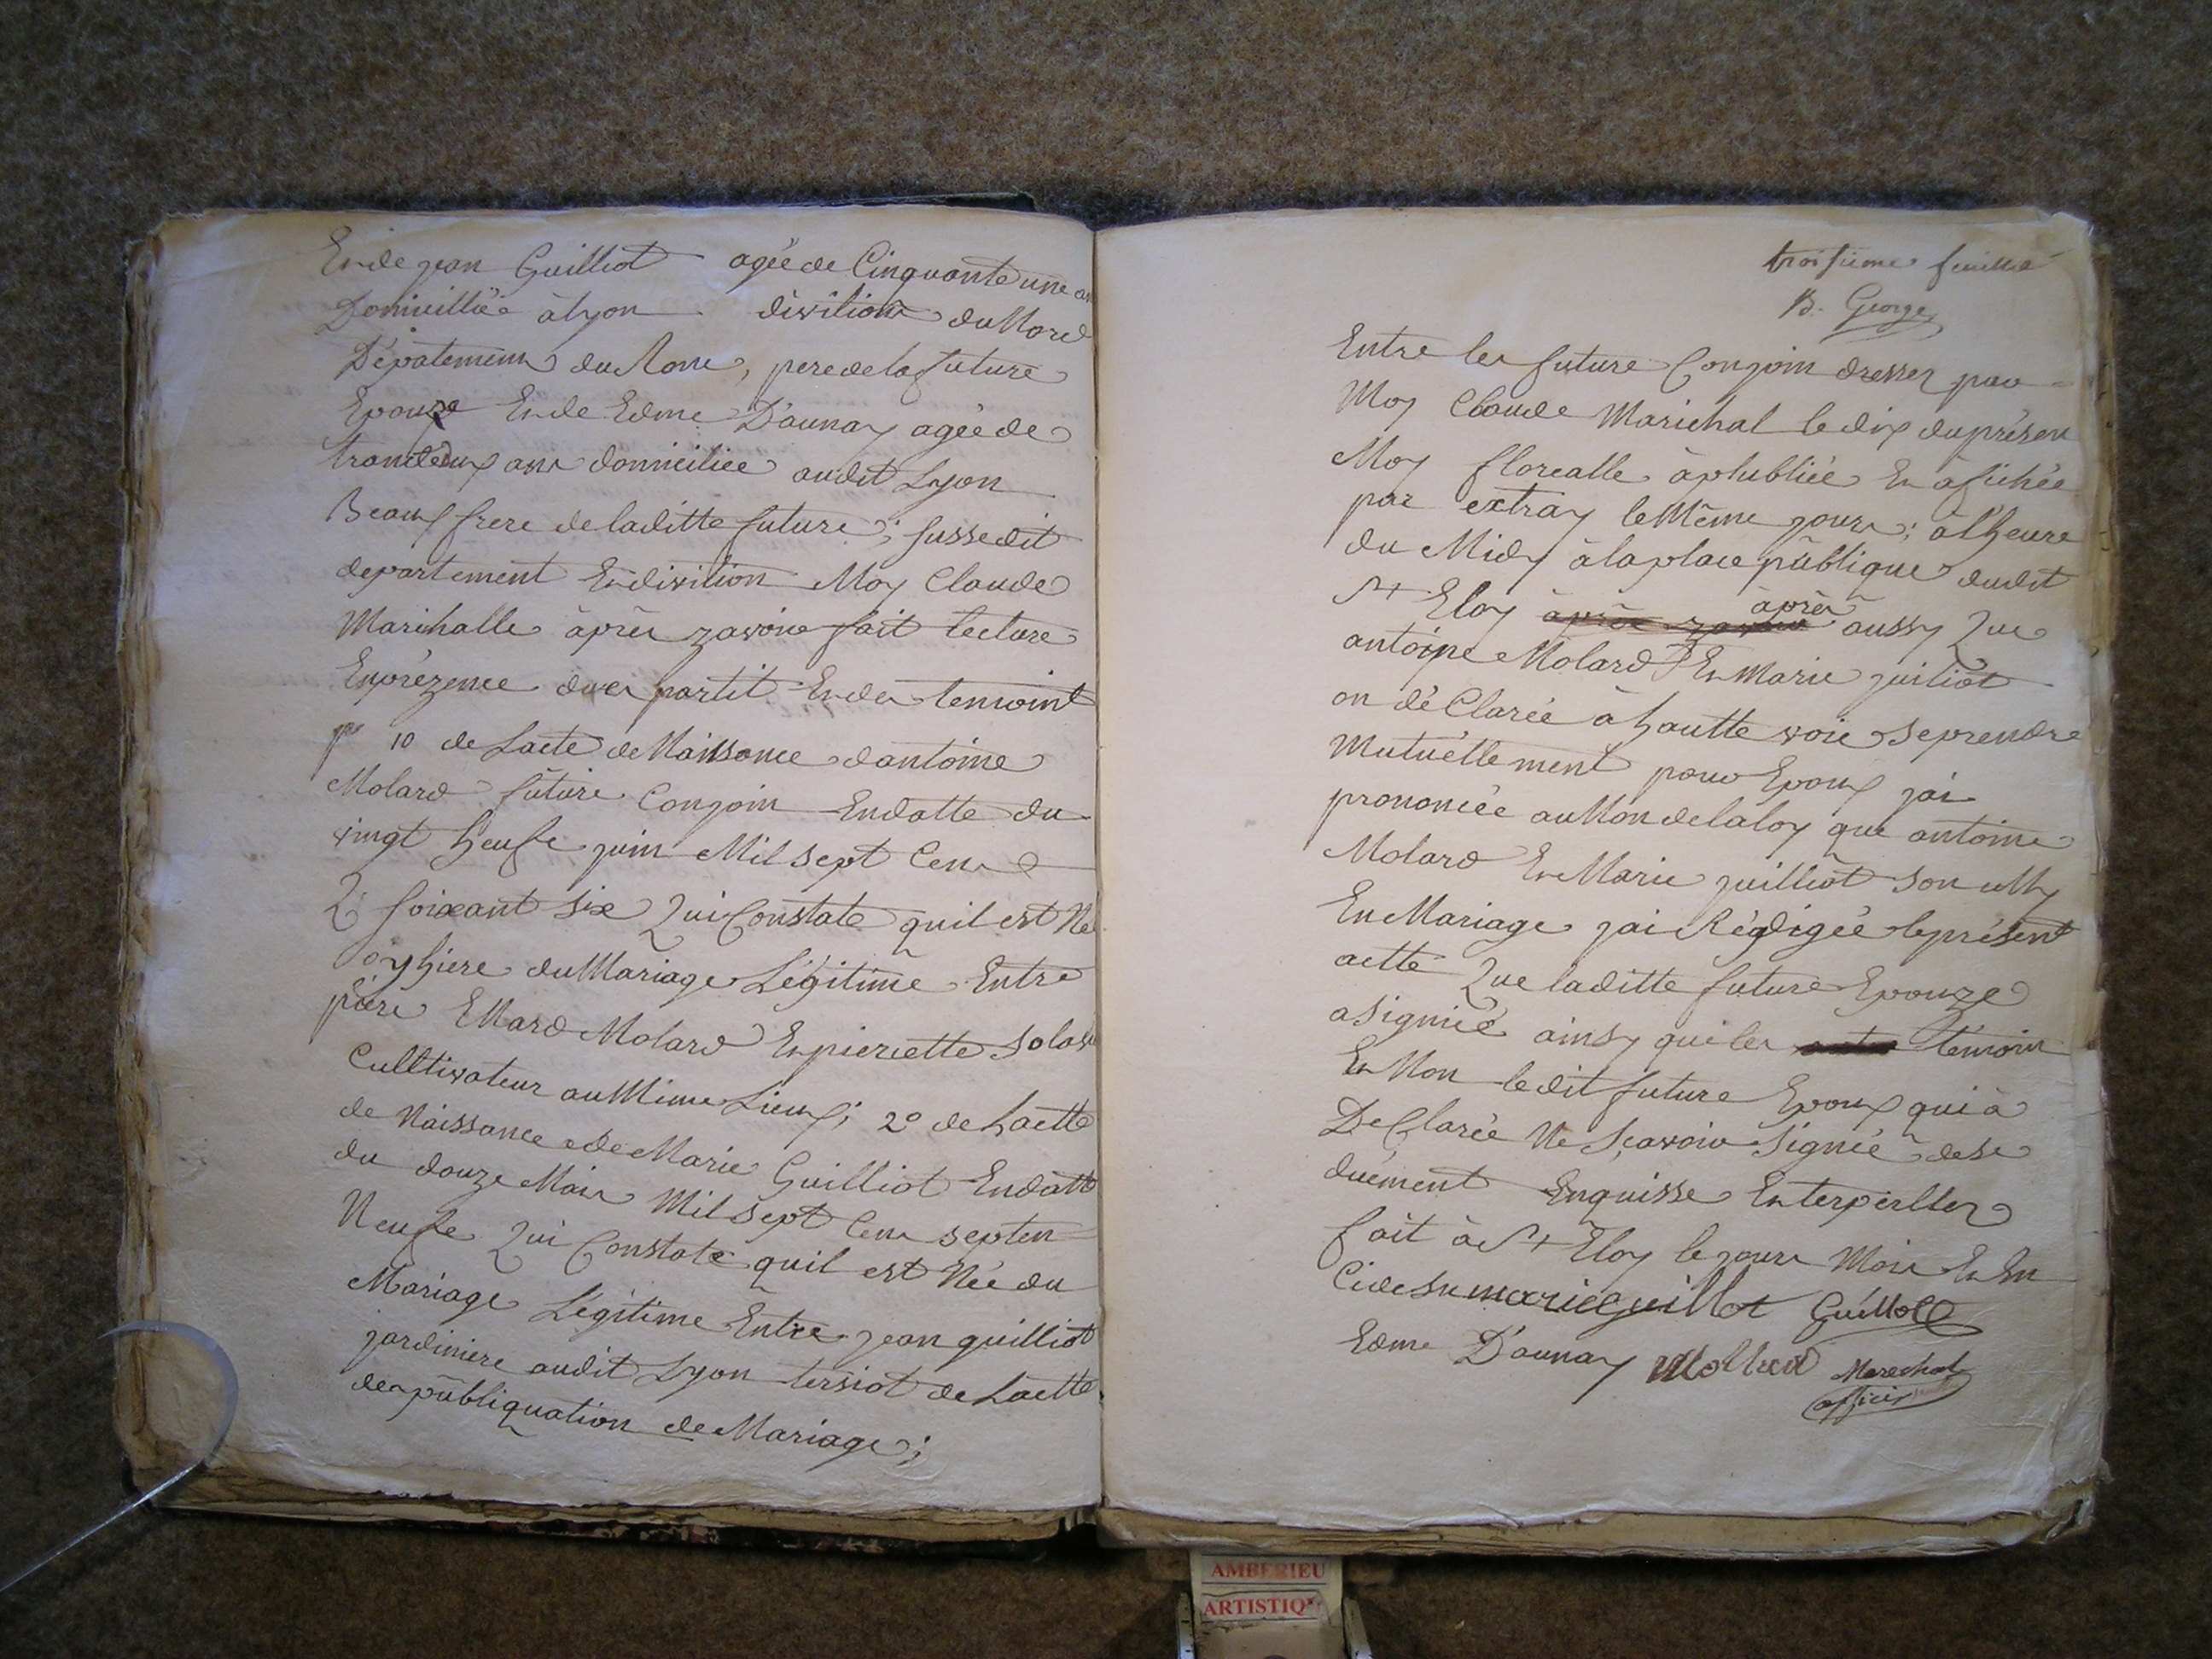 En de jean Guilliot agée de Cinquante une an
Domicilliée à lyon division du Nord
Dépatement du Rone, pere de la future
Epouze En de Edme D'aunay agée de
trantedeux ans domiciliee audit Lyon
Beauf frere de laditte future; sussedit
departement En division Moy Claude
Marichalle àprer zavoir fait lecture
En prézence der partit En der temoint
pr 10 de Lacte de Naissance dantoine
Molard future Conjoin En datte du
vingt heufe juin Mil sept Cen
soixant six Qui Constate quil est Né
du Mariage Légitime Entre
piere Molard En pierrette
Culltivateur au Mime Lieuf; 2° de Lactte
de Naissance de Marie Guilliot En datt
du douze Mair Mil sept Cen septen
Neufe Qui Constate quil est Née du
Mariage Légitime Entre jean guilliot
jardiniere audit Lyon tersiot de Lactte
der publiquation de Mariage;
troisieme feuille
B. George
Entre ler future Conjoin dresser par
Moy Claude Marichal le dix du présen
Moy florealle à plubliée En afichée
par extray le Même jour; à lheure
du Midy à la place publique dudit
St Eloy àprer aussy Que
antoine Molard En Marie juiliot
on déClarée à hautte voie se prendre
Mutuéllement pour Epouf jai
prononcée au Non de la loy que antoine
Molard En Marie juilliot son uny
En Mariage jai Rédigée le présent
actte Que laditte future Epouze
a signiée ainsy que ler témoin
En Non le dit future Epouf qui à
DeClarée Ne Sçavoir signée de se
duément Enquisse Enterpéller
fait à St Eloy le jour Moir En En
Cidesu marieguillot Guillot
Edme D'aunay Mollard Marechal
officier